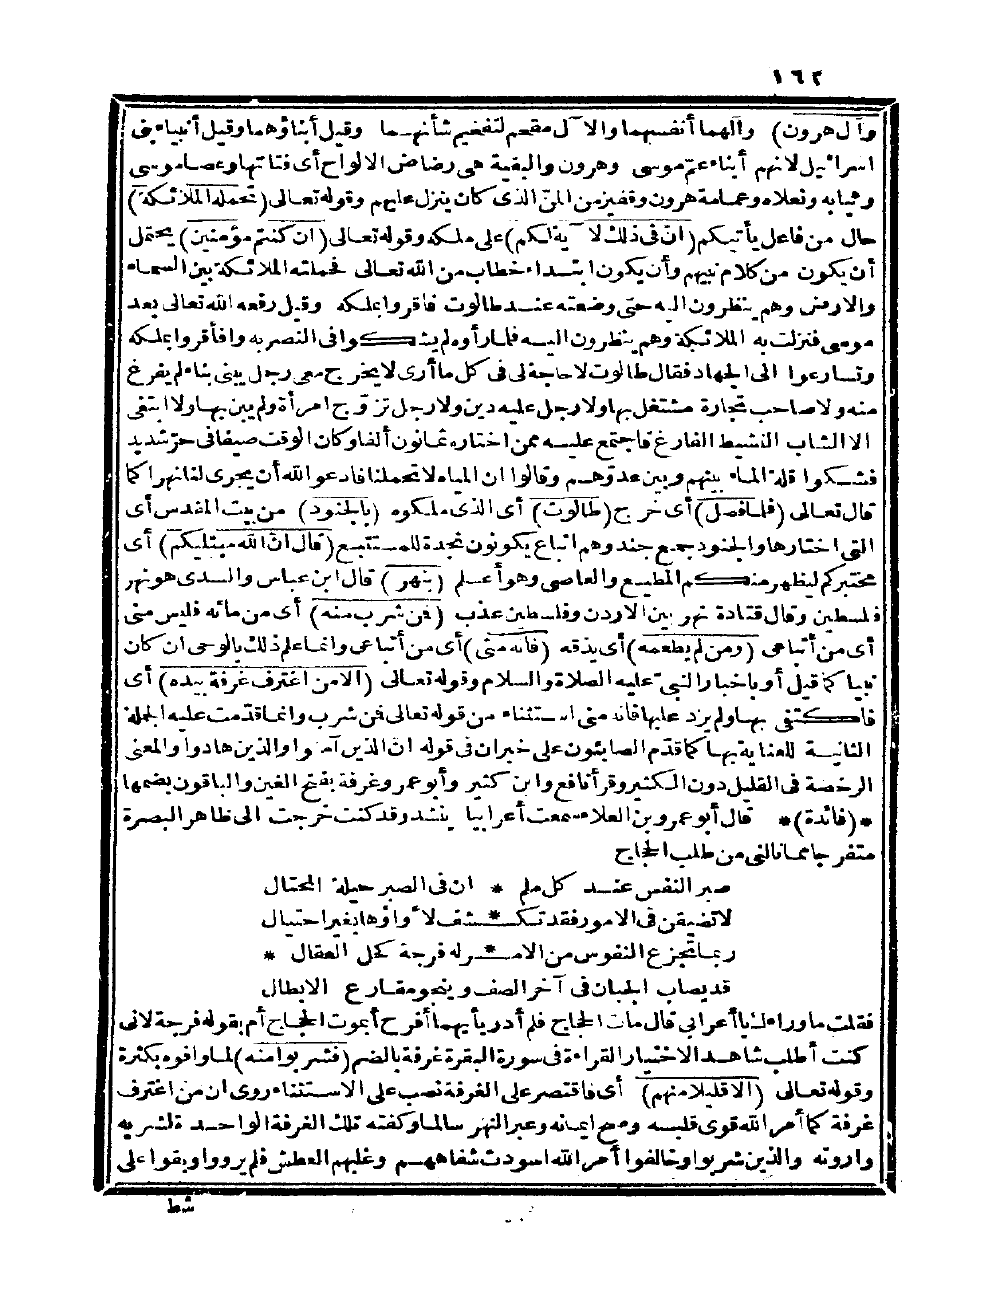 ١٦٢
وآل هرون) وآلهما أنفسهما والآل مقحم لتفخيم شأنهما وقيل أبناؤهما وقيل أنبياء بنى
اسرائيل لانهم أبناء عم موسى وهرون والبقية هى رضاض الالواح أى فتاتها وعصا موسى
وثيابه ونعلاه وعمامة هرون وقفيز من المن الذى كان ينزل عليهم وقوله تعالى (تحمله الملائكة)
حال من فاعل يأتيكم (ان فى ذلك لآية لكم) على ملكه وقوله تعالى (ان كنتم مؤمنين) يحتمل
أن يكون من كلام نبيهم وأن يكون ابتداء خطاب من الله تعالى فحملته الملائكة بين السماء
والارض وهم ينظرون اليه حتى وضعته عند طالوت فاقروا بملكه وقيل رفعه الله تعالى بعد
موسى فنزلت به الملائكة وهم ينظرون اليه فلما رأوه لم يشكوا فى النصر به وافأقروا بملكه
وتسارعوا الى الجهاد فقال طالوت لا حاجة لى فى كل ما أرى لا يخرج معى رجل يبنى بناء لم يفرغ
منه ولا صاحب تجارة مشتغل بها ولا رجل عليه دين ولا رجل تزوج امرأة ولم يبن بها ولا ابتغى
الا الشاب النشيط الفارغ فاجتمع عليه ممن اختاره ثمانون ألفا وكان الوقت صيفا فى حر شديد
فشكوا قلة الماء بينهم وبين عدوهم وقالوا ان المياه لا تحملنا فادعوا الله أن يجرى لنا نهرا كما
قال تعالى (فلما فصل) أى خرج (طالوت) أى الذى ملكوه (بالجنود) من بيت المقدس أى
التى اختارها والجنود جمع جند وهم اتباع يكونون نجدة للمستتبع (قال ان الله مبتليكم) أى
مختبركم ليظهر منكم المطيع والعاصى وهو أعلم (بنهر) قال ابن عباس والسدى هو نهر
فلسطين وقال قتادة نهر بين الاردن وفلسطين عذب (فمن شرب منه) أى من مائه فليس منى
أى من أتباعى (ومن لم يطعمه) أى يذقه (فانه منى) أى من أتباعى وانما علم ذلك بالوحى ان كان
نبيا كما قيل أو باخبار النبى عليه الصلاة والسلام وقوله تعالى (الا من اغترف غرفة بيده) أى
فاكتفى بها ولم يزد عليها فانه منى استثناء من قوله تعالى فمن شرب وانما قدمت عليه الجملة
الثانية للعناية بها كما قدم الصابئون على خبر ان فى قوله ان الذين آمنوا والذين هادوا والمعنى
الرخصة فى القليل دون الكثير وقرأ نافع وابن كثير وأبو عمرو غرفة بفتح الغين والباقون بضمها
*(فائدة)* قال أبو عمرو بن العلاء سمعت أعرابيا ينشد وقد كنت خرجت الى ظاهر البصرة
متفرجا مما نالنى من طلب الحجاج
صبر النفس عند كل ملم * ان فى الصبر حيلة المحتال
لا تضيقن فى الامور فقد تكـ * ـشف لأواؤها بغير احتيال
ربما تجزع النفوس من الامـ * ـر له فرجة كحل العقال *
قد يصاب الجبان فى آخر الصف وينجو مقارع الابطال
فقلت ما وراءك يا أعرابى قال مات الحجاج فلم أدر بأيهما أفرح أبموت الحجاج أم بقوله فرجة لانى
كنت أطلب شاهدا لاختيار القراءة فى سورة البقرة غرفة بالضم (فشربوا منه) لما وافوه بكثرة
وقوله تعالى (الا قليلا منهم) أى فاقتصر على الغرفة نصب على الاستثناء روى ان من اغترف
غرفة كما أمر الله قوى قلبه وصح ايمانه وعبر النهر سالما وكفته تلك الغرفة الواحدة لشربه
واروته والذين شربوا وخالفوا أمر الله اسودت شفاههم وغلبهم العطش فلم يرووا وبقوا على
شط